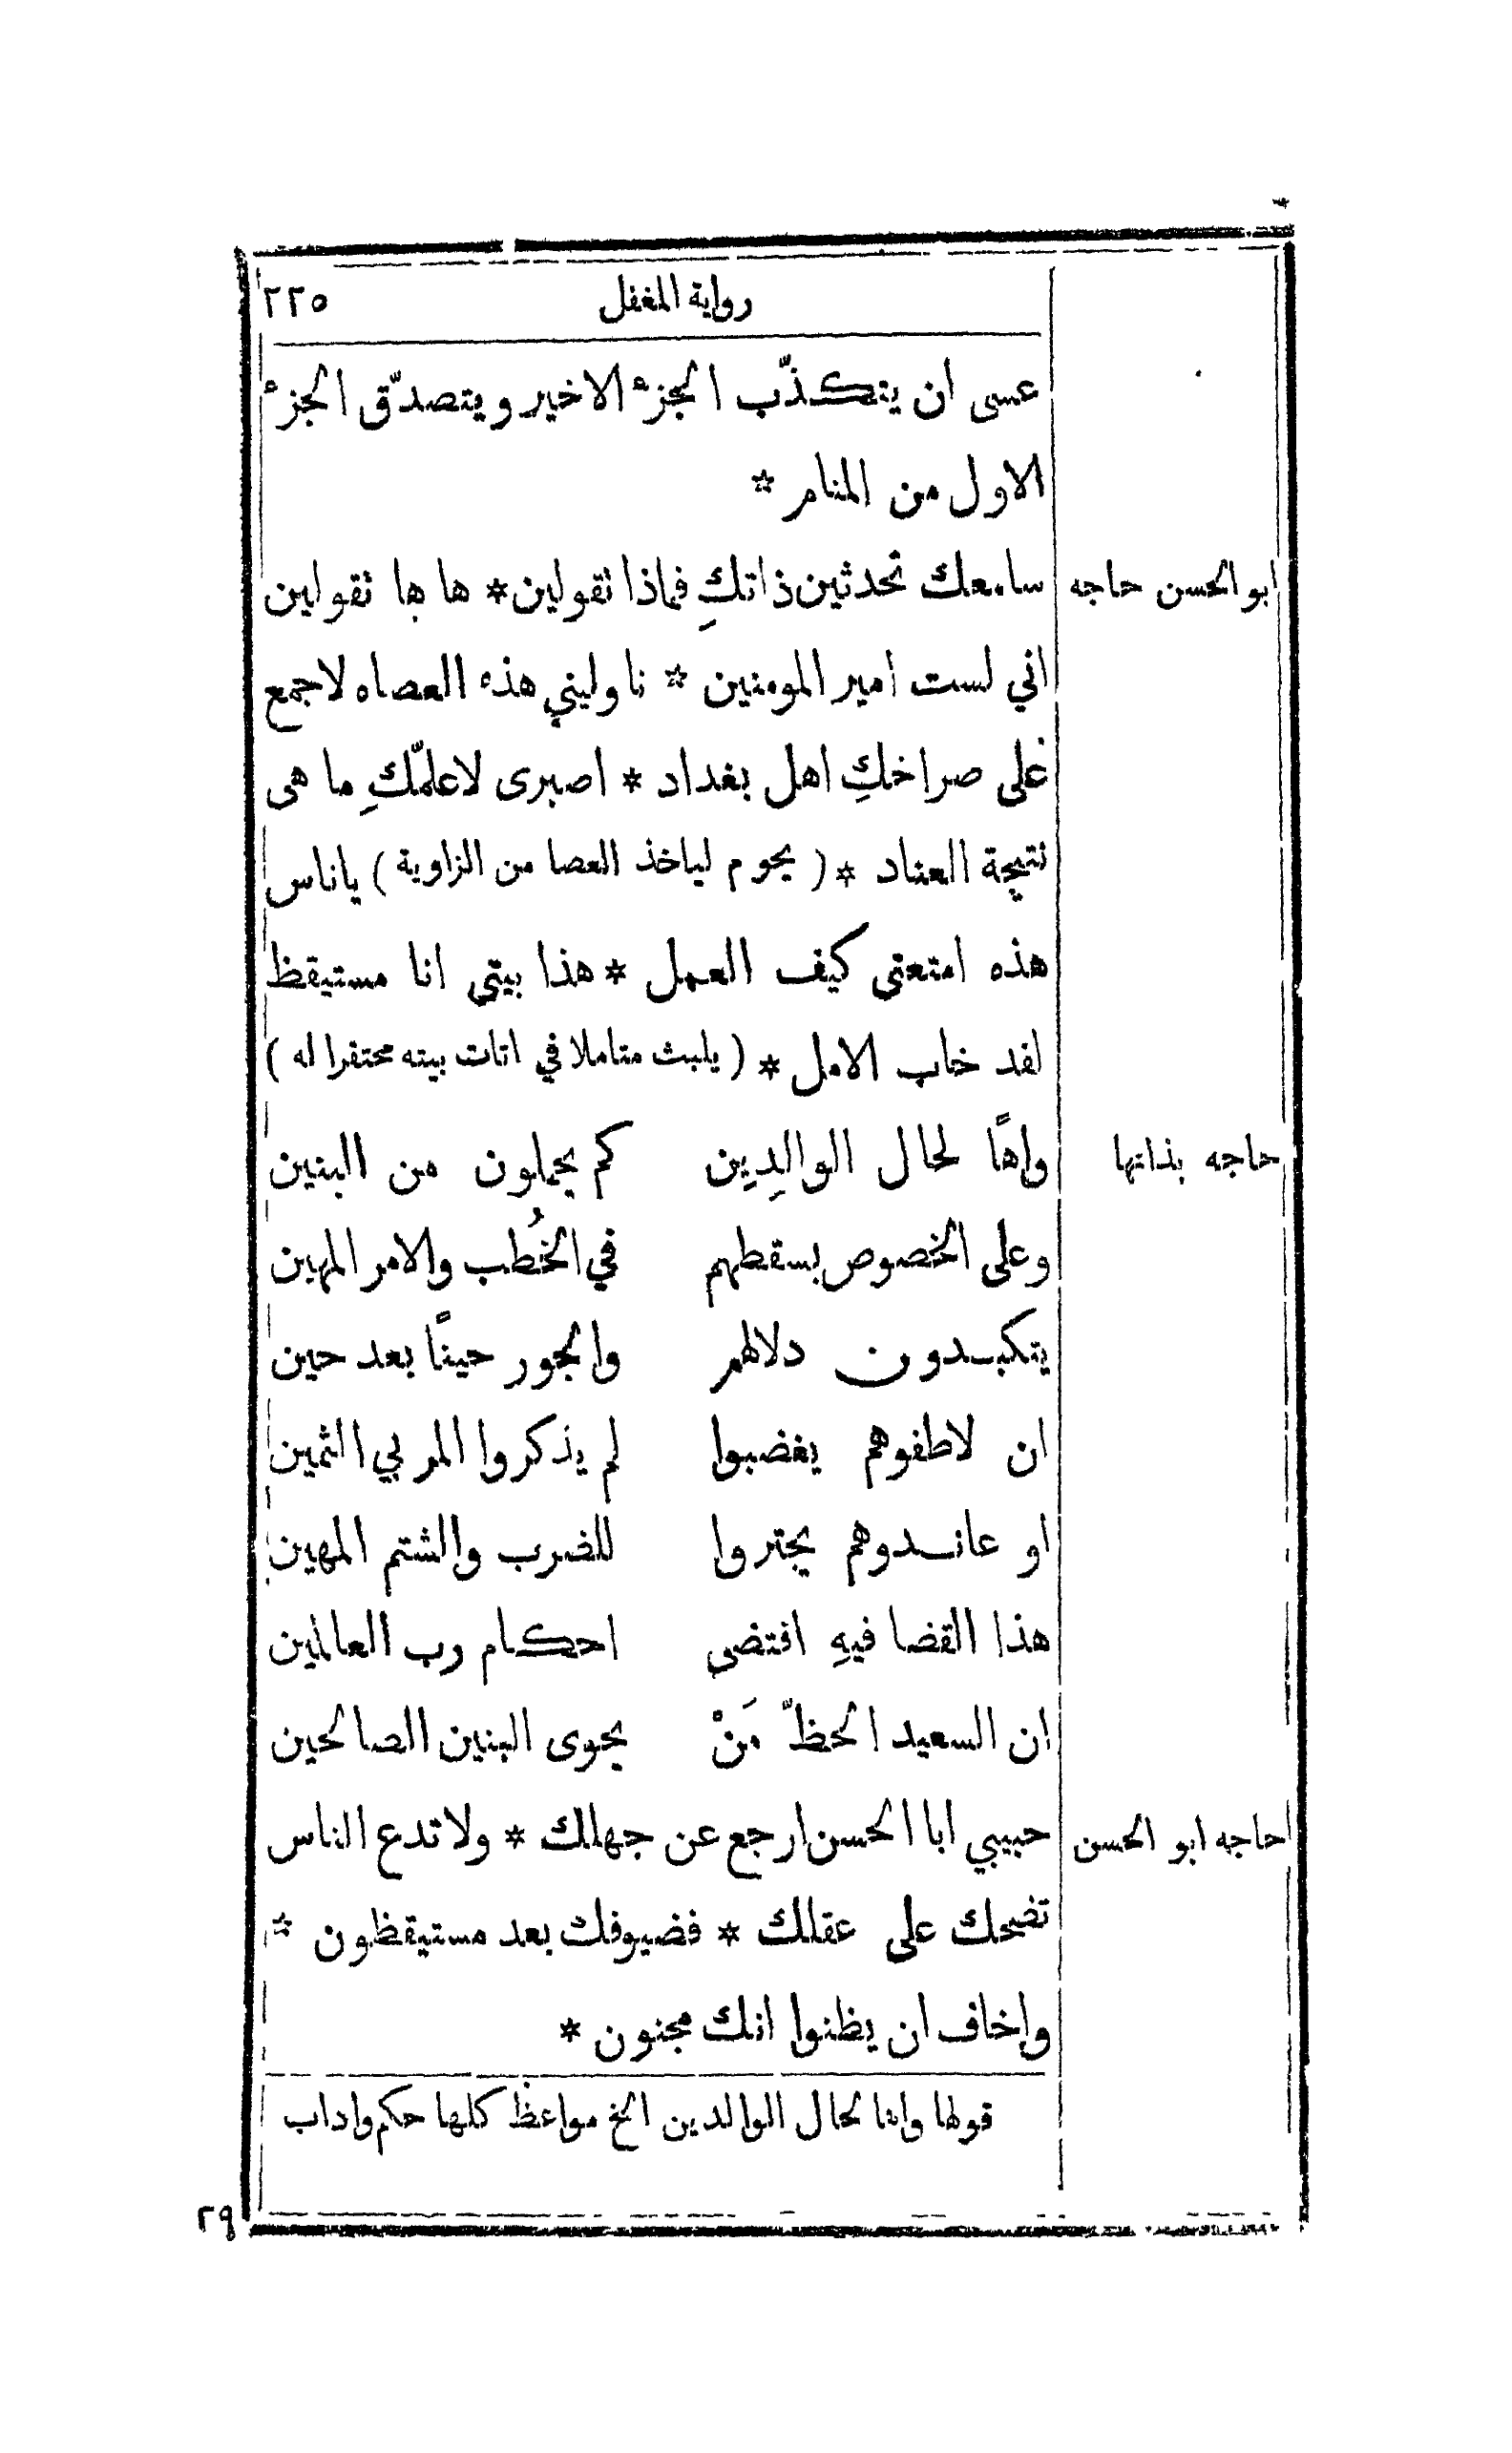 رواية المغفل ٢٢٥
عسى ان يتكذّب الجزء الاخير ويتصدّق الجزء
الاول من المنام *
ابو الحسن حاجه سامعك تحدثين ذاتكِ فماذا تقولين * ها ها تقولين
اني لست امير المومنين * ناوليني هذه العصاه لاجمع
على صراخكِ اهل بغداد * اصبرى لاعلمّكِ ما هى
نتيجة العناد * ( يحوم لياخذ العصا من الزاوية ) ياناس
هذه امتعتى كيف العمل * هذا بيتى انا مستيقظ
لقد خاب الامل * ( يلبث متاملا في اثاث بيته محتقرا له )
حاجه بذاتها واهًا لحال الوالدِين كم يحملون من البنين
وعلى الخصوص بسقطهم في الخُطب والامر المهين
يتكبدون دلالهم والجور حينًا بعد حين
ان لاطفوهم يغضبوا لم يذكروا المربي الثمين
او عاندوهم يجتروا للضرب والشتم المهين
هذا القضا فيهِ اقتضى احكام رب العالمين
ان السعيد الحظّ مَنْ يحوى البنين الصالحين
حاجه ابو الحسن حبيبي ابا الحسن ارجع عن جهالك * ولا تدع الناس
تضحك على عقلك * فضيوفك بعد مستيقظون *
واخاف ان يظنوا انك مجنون *
قولها واها لحال الوالدين الخ مواعظ كلها حكم واداب
٢٩